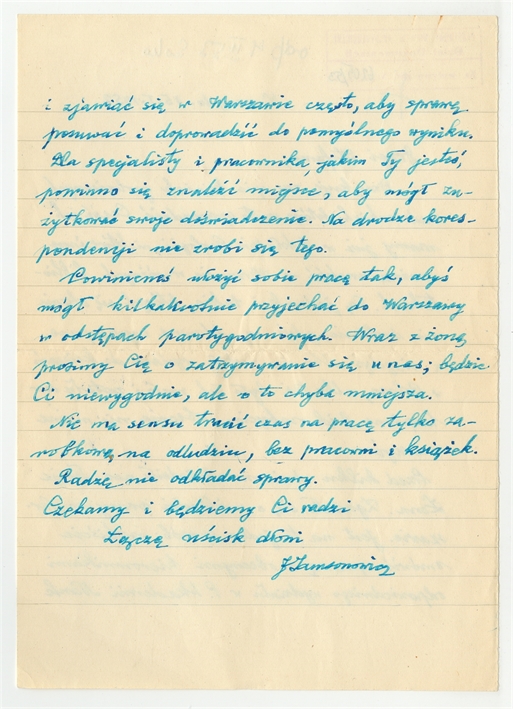 i zjawiać się w Warszawie często, aby sprawę
posuwać i doprowadzić do pomyślnego wyniku.
Dla specjalisty i pracownika, jakim Ty jesteś,
powinno się znaleźć miejsce, aby mógł zu-
żytkować swoje doświadczenie. Na drodze kores-
pondencji nie zrobi się tego.
Powinieneś ułożyć sobie pracę tak, abyś
mógł kilkakrotnie przyjechać do Warszawy
w odstępach parotygodniowych. Wraz z żoną
prosimy Cię o zatrzymywanie się u nas; będzie
Ci niewygodnie, ale o to chyba mniejsza.
Nie ma sensu tracić czas na pracę tylko za-
robkową na odludziu, bez pracowni i książek.
Radzę nie odkładać sprawy.
Czekamy i będziemy Ci radzi
Łączę uścisk dłoni
JSamsonowicz